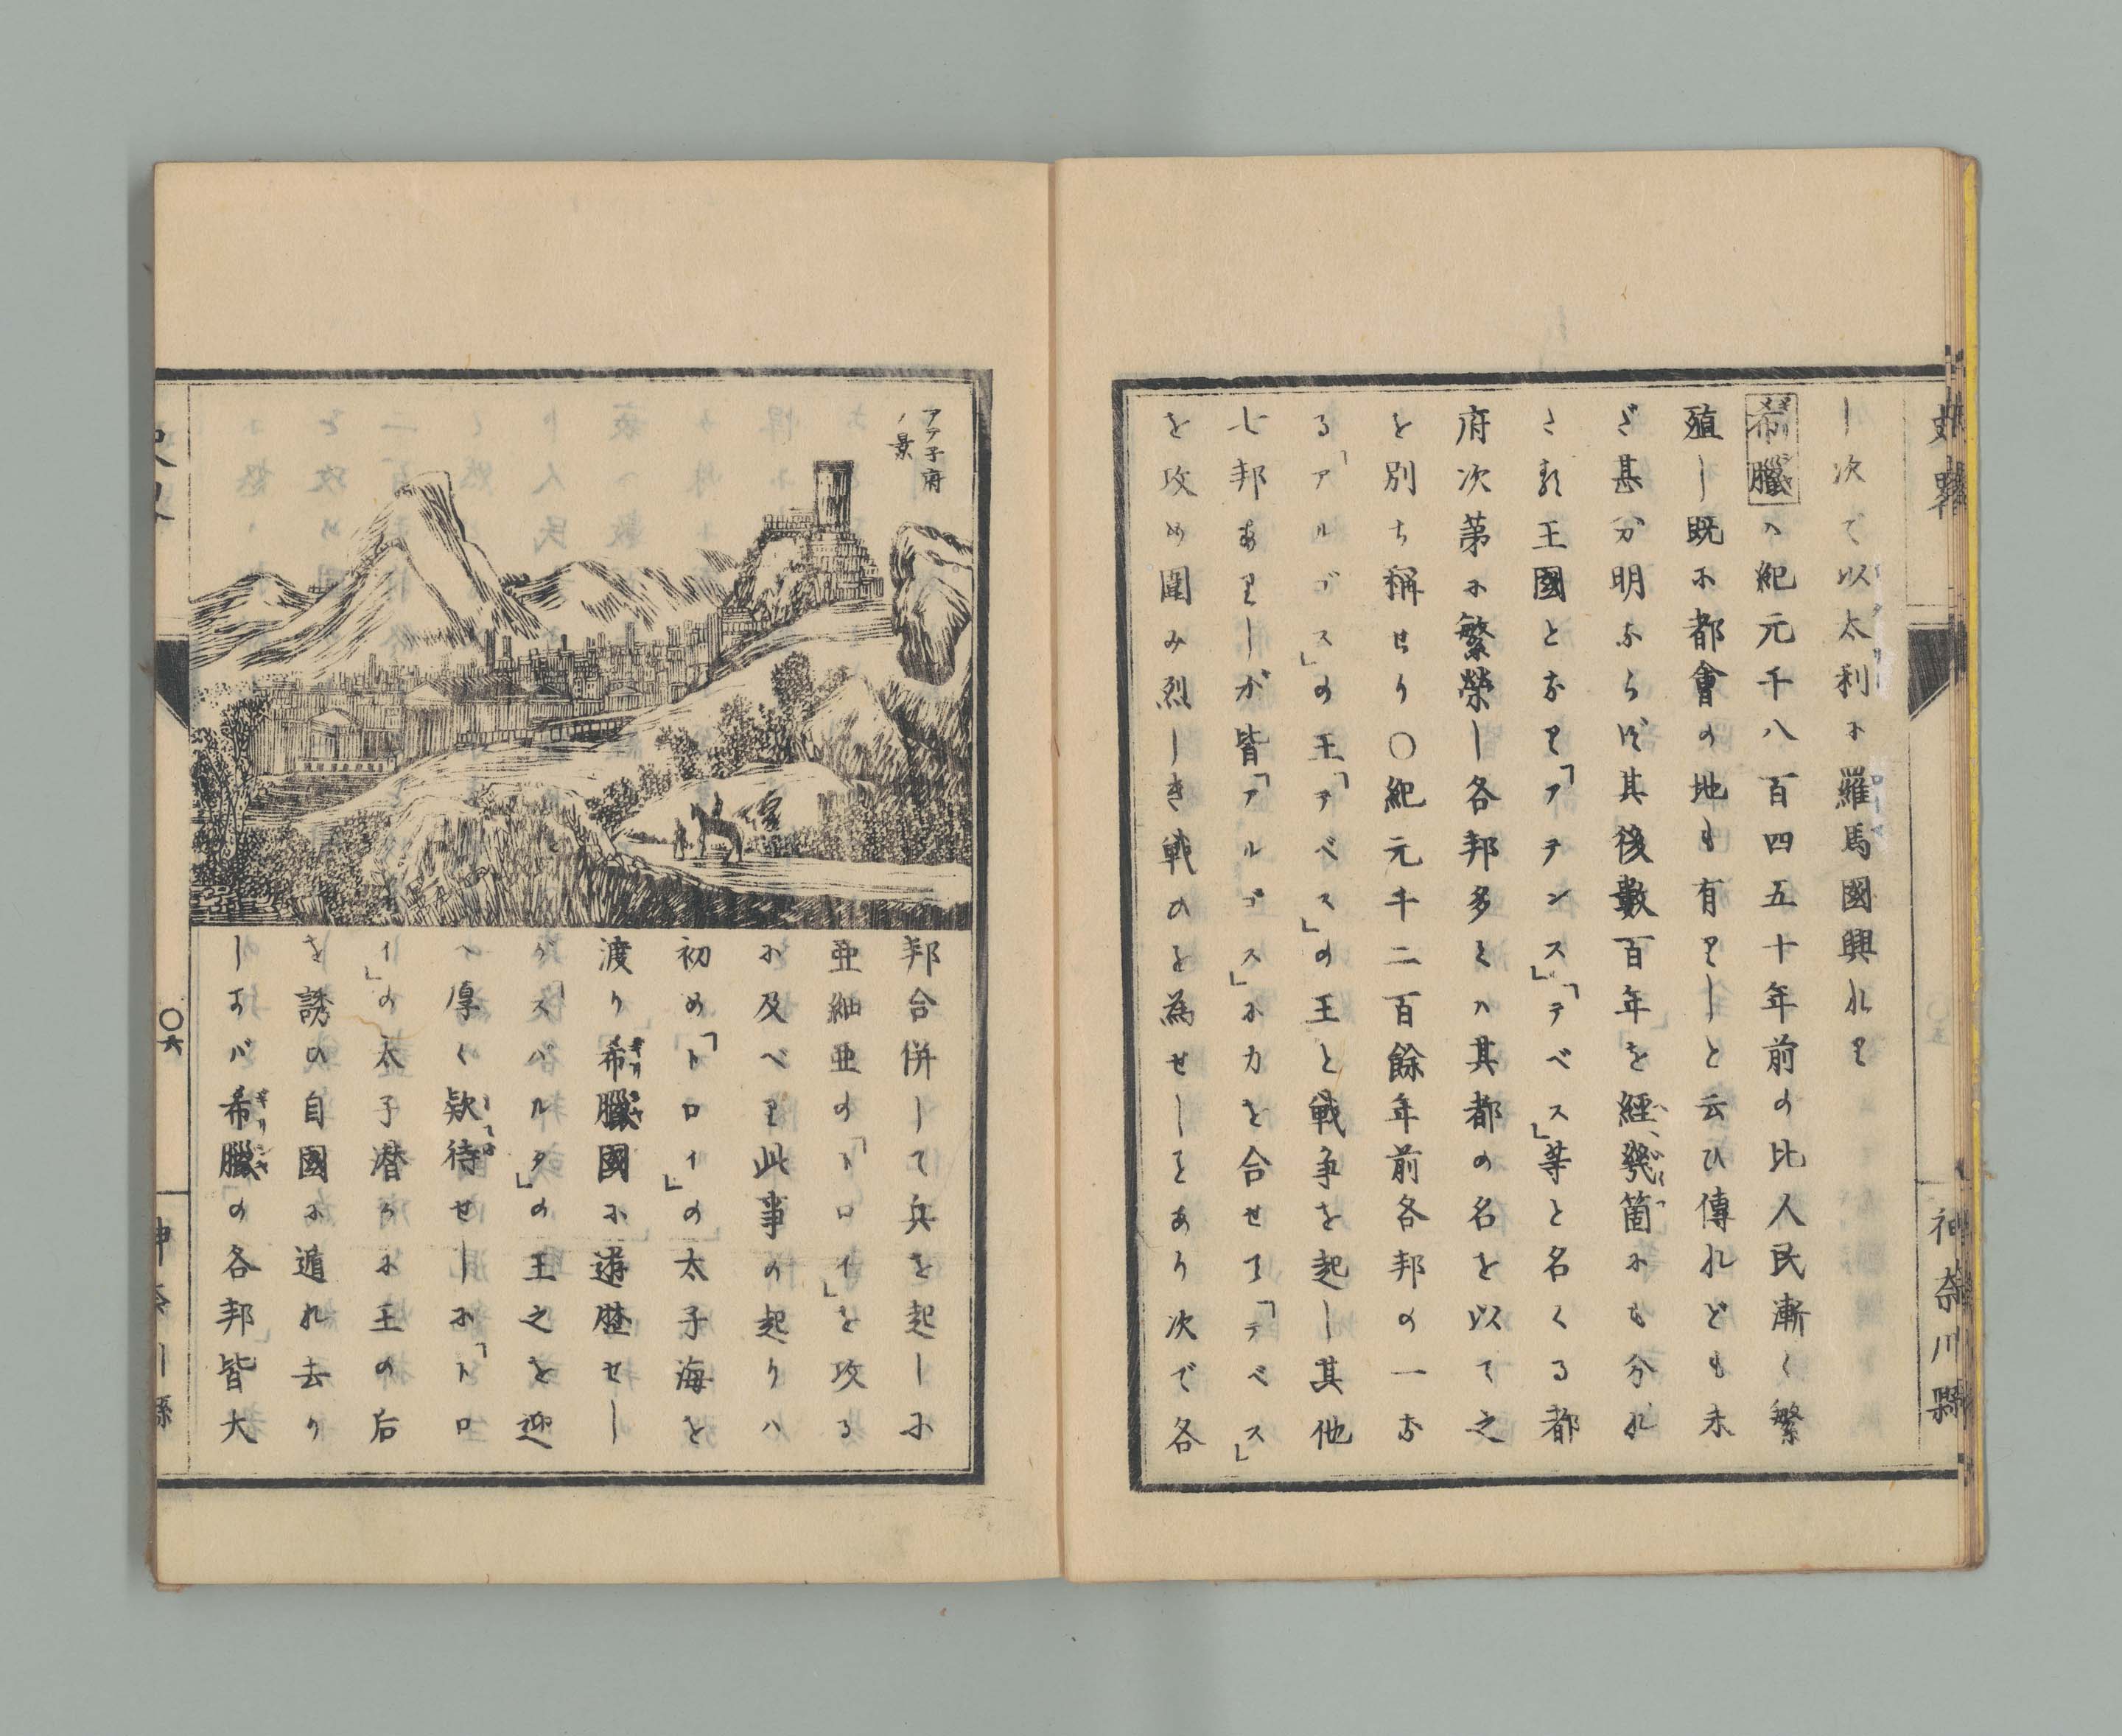 史畧
神奈川縣
し次で以太利に羅馬國興れり
希臘ハ紀元千八百四五十年前の比人民漸く繁
殖し既に都會の地も有りしと云ひ傳れども未
ざ甚分明ならば其後數百年を經、幾箇にも分れ
さる王國となり「アテンス」「テベス」等と名くる都
府次第に繁榮し各邦多くハ其都の名を以て之
を別ち稱せり〇紀元千二百餘年前各邦の一な
る「アルゴス」の王「テベス」の王と戰争を起し其他
七邦ありしが皆「アルゴス」に力を合せて「テベス」
を攻め圍み烈しき戰ひを為せしことあり次で各
アテ子府
ノ景
邦合併して兵を起し小
亜細亜の「トロイ」を攻る
に及べり此事の起りハ
初め「トロイ」の太子海を
渡り希臘國に遊歴せし
が「スパルタ」の王之を迎
へ厚く欵待せしに「トロ
イ」の太子潜かに王の后
を誘ひ自國に遁れ去り
しかバ希臘の各邦皆大
〇六